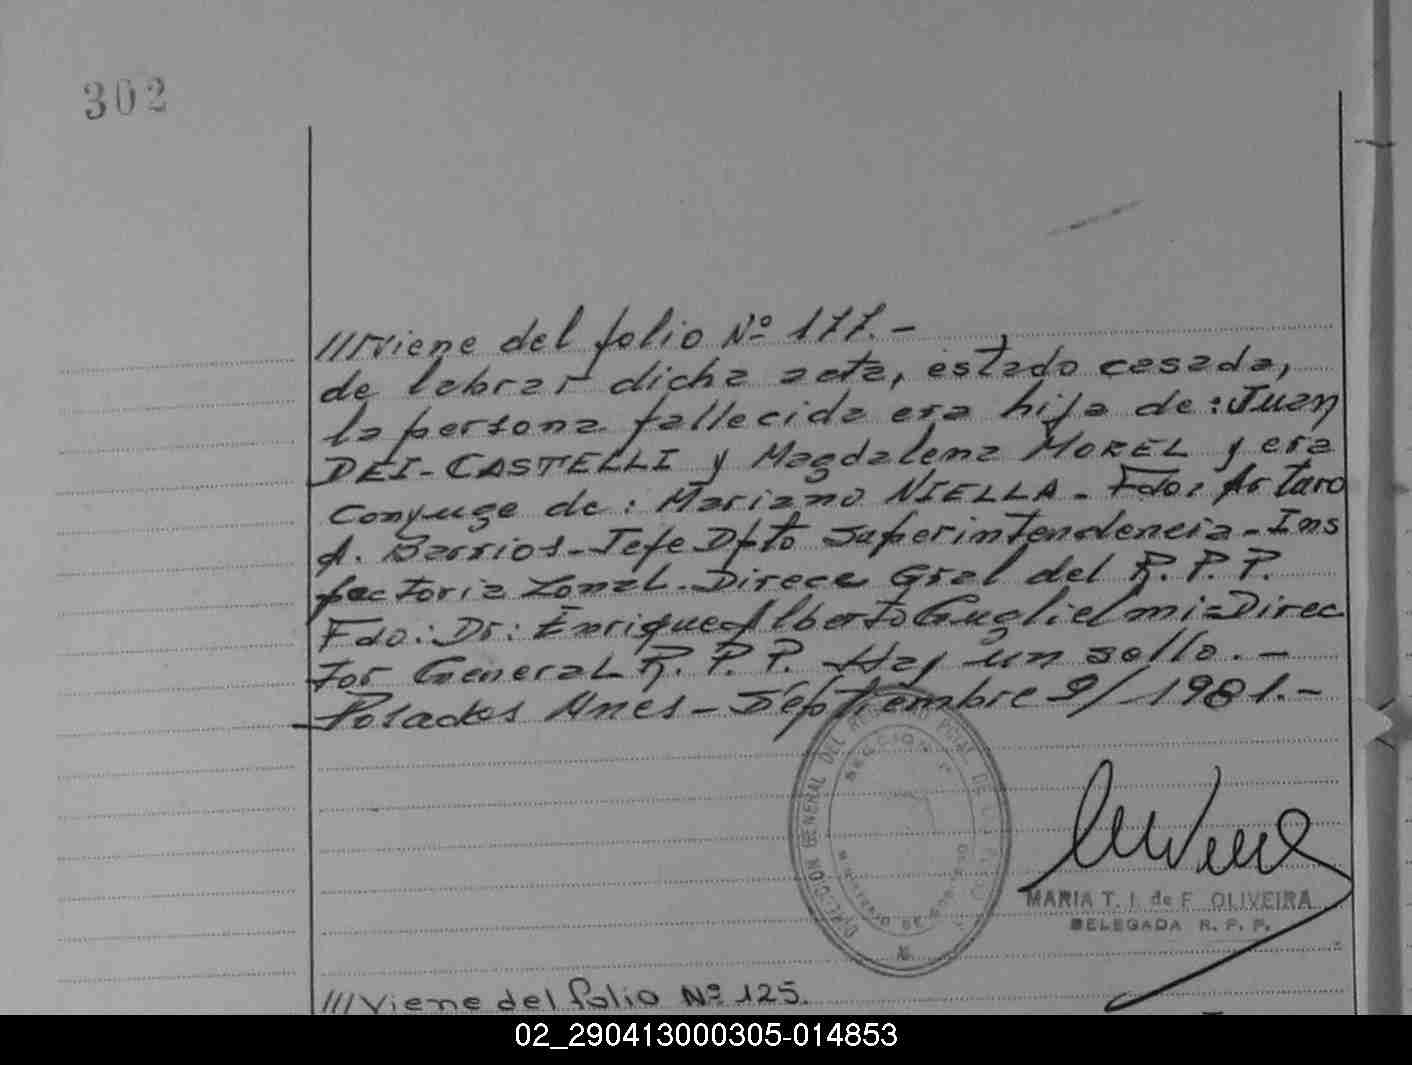 302
///Viene del folio Nº 177.-
de labrar dicha acta, estado casada,
la persona fallecida era hija de: Juan
DEI-CASTELLI y Magdalena MOREL y era
Conyuge de: Mariano NIELLA - Fdo: Arturo
A. Barrios - Jefe Dpto Superintendencia - Ins
pectoria Zonal. Direcc Gral del R. P. P.
Fdo: Dr: Enrique Alberto Guglielmi = Direc
tor General R. P. P. Hay un sello. -
Posadas Mnes - Septiembre 9/1981.-
DIRECCION GENERAL DEL REGISTRO PCIAL DE LAS
SECCION 1ª
MINISTERIO DE GOBIERNO
MARIA T. I. de F. OLIVEIRA
DELEGADA R. P. P.
///Viene del folio Nº 125.
02_290413000305-014853